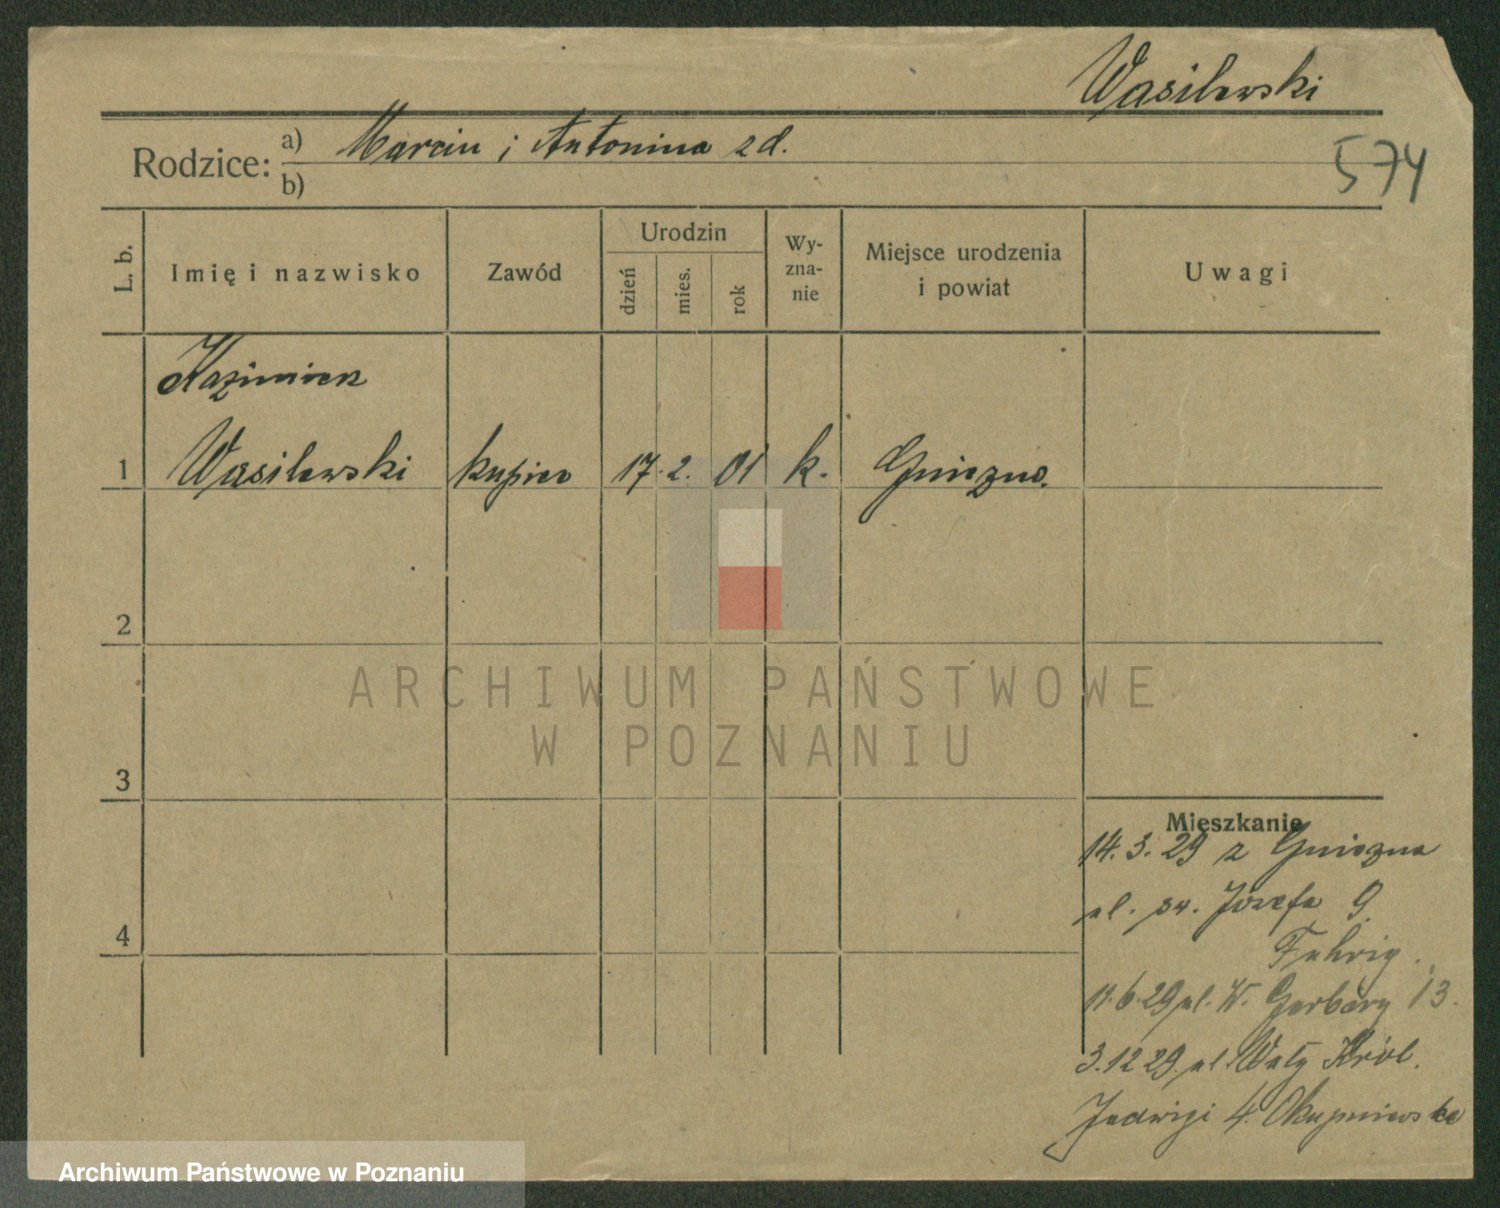 Wasilewski
Rodzice: a) Marcin i Antonina zd.
b)
574
L. b.
Imię i nazwisko
Zawód
Urodzin
dzień
mies.
rok
Wy-
zna-
nie
Miejsce urodzenia
i powiat
Uwagi
Kazimierz
1 Wasilewski kupiec 17. 2. 01 k. Gniezno.
2
3
4
Mieszkanie
14. 3. 29 z Gniezna
ul. św. Józefa 9.
Fehrig.
11.6.29 ul. W. Garbary 13.
3.12 29. ul. Wały Król.
Jadwigi 4. Okupniewska
ARCHIWUM PAŃSTWOWE
W POZNANIU
Archiwum Państwowe w Poznaniu